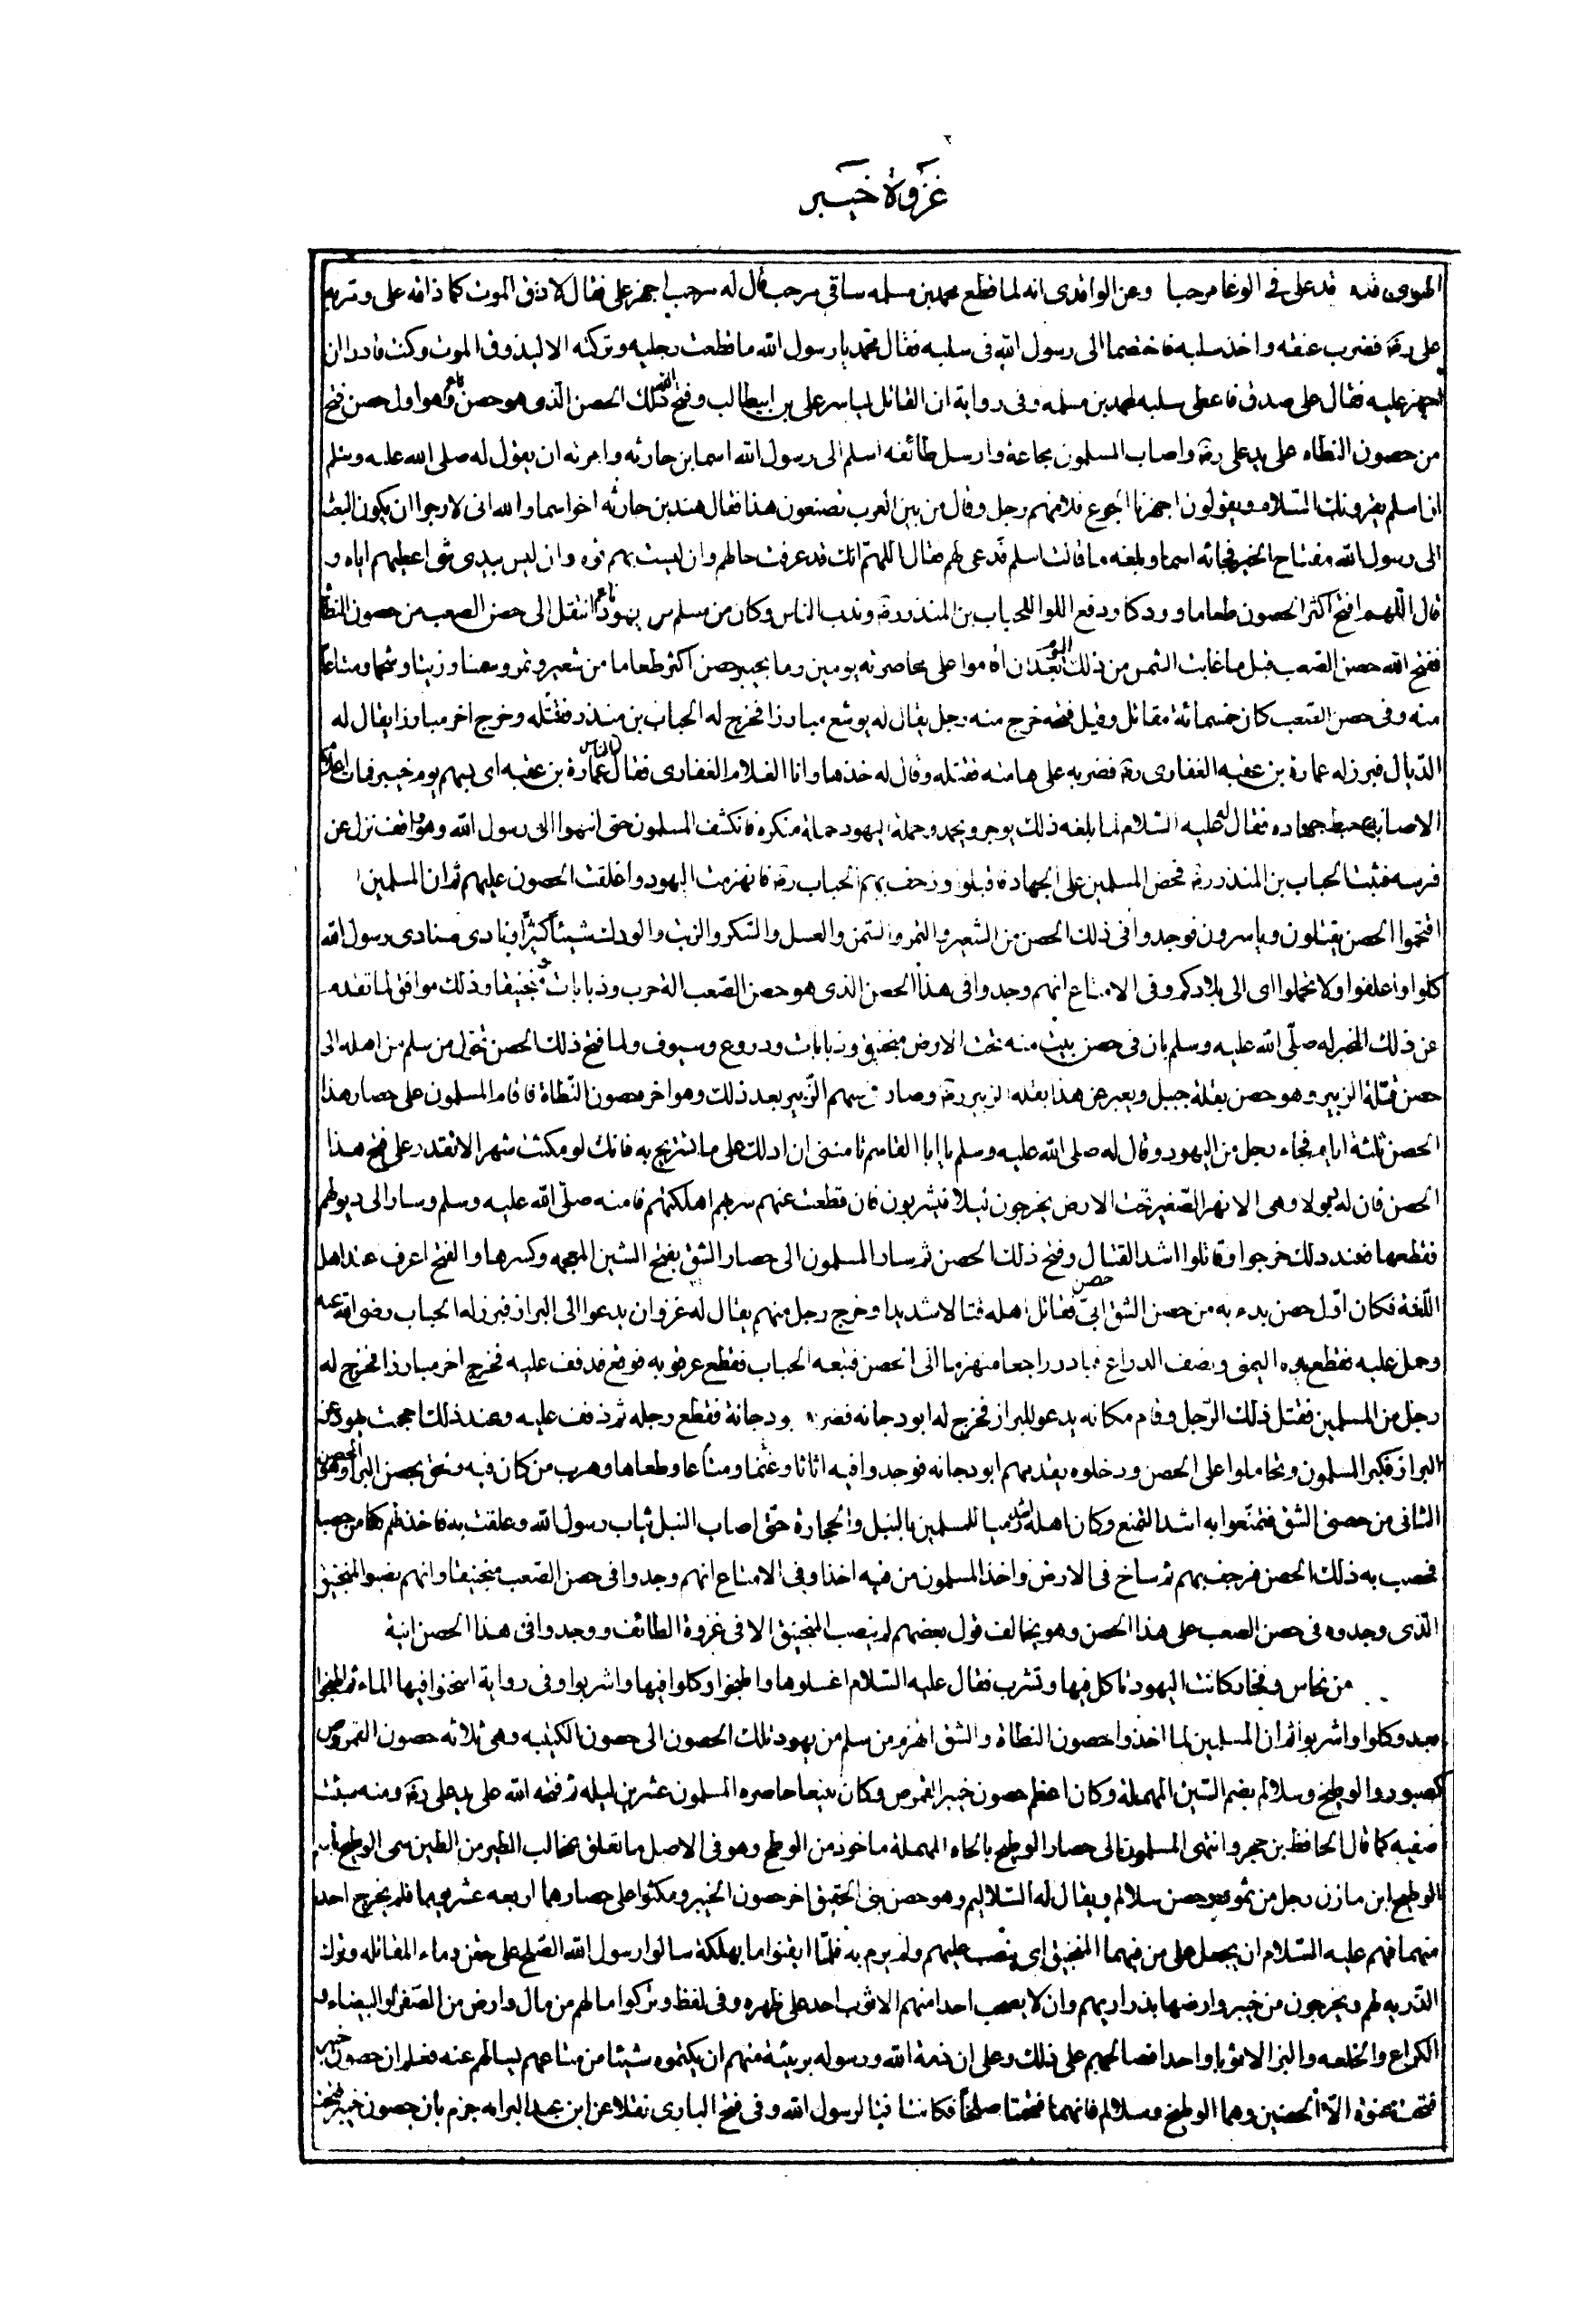 غزوة خيبر
قد على فى الوغا مرحبا وعن الواقدى انه لما قطع محمد بن مسلمه ساقى مرحب قال له مرحب اجهز على فقال لا ذق الموت كما ذاقه على ومر به
على رضه فضرب عنقه واخذ سلبه فاختصما الى رسول الله فى سلبه فقال محمد يا رسول الله ما قطعت رجليه وتركته الا ليذوق الموت وكنت قادرا ان
اجهز عليه فقال على صدق فاعطى سلبه لمحمد بن مسلمه وفى رواية ان القاتل لياسر على بن ابيطالب وفتح الله ذلك الحصن الذى هو حصن ناعم وهو اول حصن فتح
من حصون النطاه على يد على رضه واصاب المسلمون مجاعة وارسل طائفه اسلم الى رسول الله اسما بن حارثه وامرته ان يقول له صلى الله عليه وسلم
ان اسلم يقرونك السلام ويقولون اجهزنا الجوع فلامهم رجل وقال من بين العرب تصنعون هذا فقال هند بن حارثه اخو اسما والله انى لارجوا ان يكون البعث
الى رسول الله مفتاح الخير فجائه اسما وبلغه ما قالت اسلم فدعى لهم فقال اللهم انك قد عرفت حالهم وان ليست بهم قوه وان ليس بيدى شى اعطيهم اياه و
قال اللهم افتح اكثر الحصون طعاما وودكا ودفع اللوا للحباب بن المنذر رضه وندب الناس وكان من سلم من يهود ناعم انتقل الى حصن الصعب من حصون النطاة
ففتح الله حصن الصعب قبل ما غابت الشمس من ذلك اليوم بعد ان اقاموا على محاصرته يومين وما بخيبر حصن اكثر طعاما من شعير وتمر وسمنا وزيتا وشحما ومتاعا
منه وفى حصن الصعب كان خمسمائة مقاتل وقيل فتحه خرج منه رجل يقال له يوشع مبارزا فخرج له الحباب بن منذر فقتله وخرج اخر مبارزا يقال له
الديال فبرز له عمارة بن عقبه الغفارى رضه فضربه على هامته فقتله وقال له خذها وانا الغلام الغفارى فقال الناس
الاصابه حبط جهاده فقال له عليه السلام لما بلغه ذلك يوجر ويحمد وحملة اليهود حملة منكره فانكشف المسلمون حتى انتهوا الى رسول الله وهو واقف نزل عن
فرسه فثبت الحباب بن المنذر رضه فحض المسلمين على الجهاد فاقبلوا وزحف بهم الحباب رضه فانهزمت اليهود واغلقت الحصون عليهم ثم ان المسلمين
اقتحموا الحصن يقتلون وياسرون فوجدوا فى ذلك الحصن من الشعير والتمر والسمن والعسل والسكر والزيت والودك شيئا كثيرا ونادى منادى رسول الله
كلوا واعلفوا ولا تحملوا اى الى بلادكم وفى الامتاع انهم وجدوا فى هذا الحصن الذى هو حصن الصعب الة حرب ودبابات ومنجنيقا وذلك موافق لما تقدم
عن ذلك المخبر له صلى الله عليه وسلم بان فى حصن بيت منه تحت الارض منجنيق ودبابات ودروع وسيوف ولما فتح ذلك الحصن تحول من سلم من اهله الى
حصن قلة الزبير وهو حصن بقلة جبيل ويعبر عن هذا بقله الزبير رضه وصار فى سهم الزبير بعد ذلك وهو اخر حصون النطاة فاقام المسلمون على حصار هذا
الحصن ثلثة ايام فجاء رجل من اليهود وقال له صلى الله عليه وسلم يا ابا القاسم تامننى ان ادلك على ما تستريح به فانك لو مكثت شهرا لا تقدر على فتح هذا
الحصن فان له دبولا وهى الانهر الصغير تحت الارض يخرجون ليلا فيشربون فان قطعت عنهم شربهم اهلكتهم فامنه صلى الله عليه وسلم وسار الى دبولهم
فقطعها فعند ذلك خرجوا وقاتلوا اشد القتال وفتح ذلك الحصن ثم سار المسلمون الى حصار الشق بفتح الشين المعجمه وكسرها والفتح اعرف عند اهل
اللغة فكان اول حصن بدء به من حصن الشق حصن ابى فقاتل اهله قتالا شديدا وخرج رجل منهم يقال له غزوان يدعوا الى البراز فبرز له الحباب رضى الله عنه
وحمل عليه فقطع يده اليمنى ونصف الذراع فبادر راجعا منهزما الى الحصن فتبعه الحباب فقطع عرقوبه فوقع فذفف عليه فخرج اخر مبارزا فخرج له
رجل من المسلمين فقتل ذلك الرجل وقام مكانه يدعو للبراز فخرج له ابو دجانه فضربه ابو دجانة فقطع رجله ثم ذفف عليه وعند ذلك احجمت يهود عن
البراز فكبر المسلمون وتحاملوا على الحصن ودخلوه يقدمهم ابو دجانه فوجدوا فيه اثاثا وغنما ومتاعا وطعاما وهرب من كان فيه ولحق بحصن البرا وهو الحصن
الثانى من حصنى الشق فتمنعوا به اشد التمنع وكان اهله اشد رميا للمسلمين بالنبل والحجارة حتى اصاب النبل ثياب رسول الله وعلقت به فاخذ لهم كفا من حصبا
فحصب به ذلك الحصن فرجف بهم ثم ساخ فى الارض واخذ المسلمون من فيه اخذا وفى الامتاع انهم وجدوا فى حصن الصعب منجنيقا وانهم نصبوا المنجنيق
الذى وجدوه فى حصن الصعب على هذا الحصن وهو يخالف قول بعضهم لم ينصب المنجنيق الا فى غزوة الطائف ووجدوا فى هذا الحصن انية
من نحاس وفخار كانت اليهود تاكل فيها وتشرب فقال عليه السلام اغسلوها واطبخوا وكلوا فيها واشربوا وفى رواية اسخنوا فيها الماء ثم اطبخوا
بعد وكلوا واشربوا ثم ان المسلمين لما اخذوا حصون النطاة والشق انهزم من سلم من يهود تلك الحصون الى حصون الكتيبه وهى ثلاثه حصون القموص
كصبور والوطيح وسلالم بضم السين المهملة وكان اعظم حصون خيبر القموص وكان منيعا حاصره المسلمون عشرين ليله ثم فتحه الله على يد على رضه ومنه سبيت
صفيه كما قال الحافظ بن حجر وانتهى المسلمون الى حصار الوطيح بالحاء المهملة ماخوذ من الوطح وهو فى الاصل ما تعلق بمخالب الطير من الطين سمى الوطيح باسم
الوطيح ابن مازن رجل من ثمود وحصن سلالم ويقال له السلاليم وهو حصن بنى الحقيق اخر حصون الخيبر ومكثوا على حصارهما اربعه عشر يوما فلم يخرج احد
منهما فهم عليه السلام ان يجعل على من فيهما المنجنيق اى ينصب عليهم ولم يرم به فلما ايقنوا ما بهلكة سالوا رسول الله الصلح على حقن دماء المقاتله وترك
الذريه لهم ويخرجون من خيبر وارضها بذراريهم وان لا يصحب احدا منهم الا ثوب احد على ظهره وفى لفظ وتركوا مالهم من مال وارض من الصفرا والبيضاء و
الكراع والحلقه والبز الا ثوبا واحدا فصالحهم على ذلك وعلى ان ذمة الله ورسوله بريئة منهم ان يكتموه شيئا من متاعهم يسالهم عنه فعلم ان حصون خيبر
فتحت عنوة الا الحصنين وهما الوطيح وسلالم فانهما فتحتا صلحا فكانتا فيئا لرسول الله وفى فتح البارى نقلا عن ابن عبد البر انه جزم بان حصون خيبر فتحت